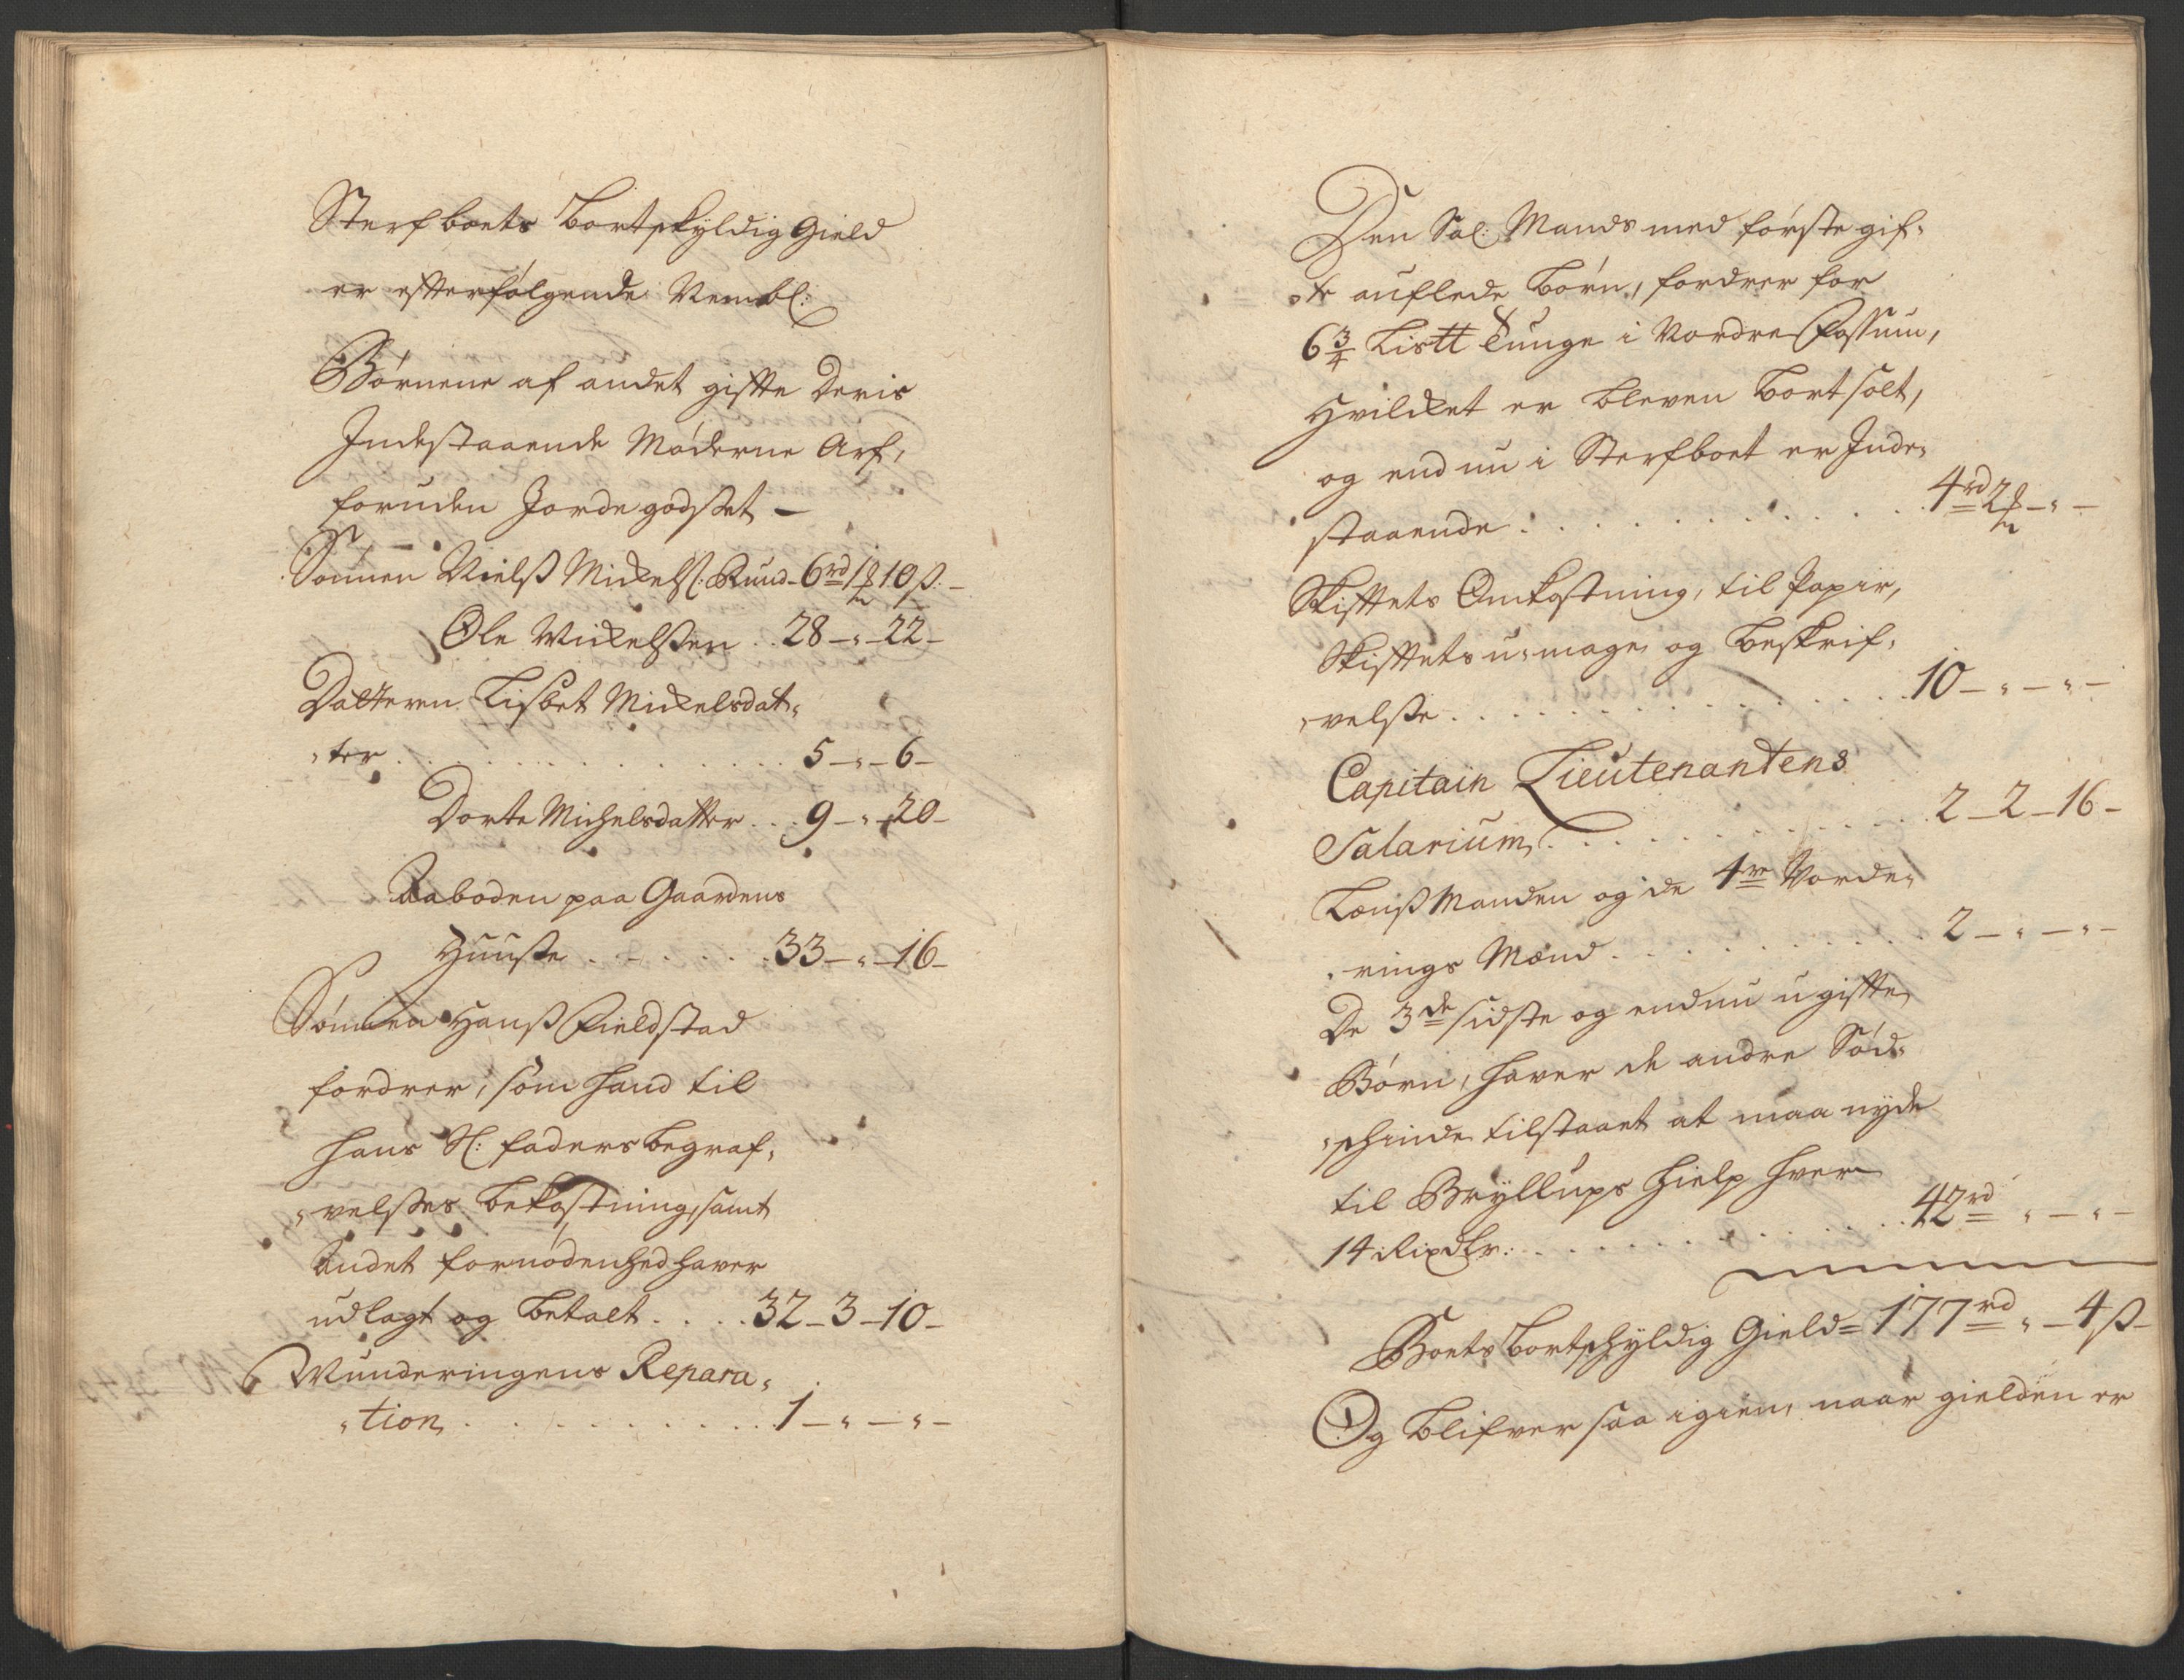 Sterfboets bortskyldig Gield
er efterfølgende Nembl:
Børnene af andet gifte deris
Indestaaende Møderne Arf,
foruden Jordegodset –
Sønnen Nielß Mickelß: Ruud - 6rd 1 10 ß. –
Ole Mickelßen .. 28 – „ – 22 –
Datteren Lisbet Mickelsdat„
„ter . . . . . . . . . . 5 – „ – 6 –
Dorte Michelsdatter . . . 9 – „ – 20 –
Aaboden paa Gaardens
Huuße . . . . . . 33 – „ – 16 –
Sønnen Hanß Fieldstad
fordrer, som hand til
hans Sl: faders begraf„
„velßes bekostning, samt
Andet fornødenhed haver
udlagt og betalt . . . . 32 – 3 – 10 –
Munderingens Repara„
„tion . . . . . . . . . 1 – „ – „ –
Den Sal: Mands med første gif„
„te auflede børn, fordrer for
6 3/4 Lis℔ tunge i Nordre Fossum,
Hvilcket er bleven bortsolt,
og end nu i Sterfboet er Inde„
staaende . . . . . . . . . . . 4rd 2 – „ –
Skifftets Omkostning, til Papir,
Skifftets u-mage, og beskrif„
„velße . . . . . . . . . . . 10 – „ – „ –
Capitain Lieutenantens
Salarium, . . . . . . . . . . 2 – 2 – 16 –
Lenß Manden og de 4re Vorde„
„rings Mænd . . . . . . . . . 2 – „ – „ –
De 3de sidste og endnu ugifte
Børn, haver de andre Sød„
„schinde tilstaaet at maa nyde
til Bryllups hielp hver
14 Rixdlr: . . . . . . . . . . 42rd „ – „ –
Boets bortschyldig Gield = 177rd „ – 4 ß –
Og blifver saa igien, naar gielden er